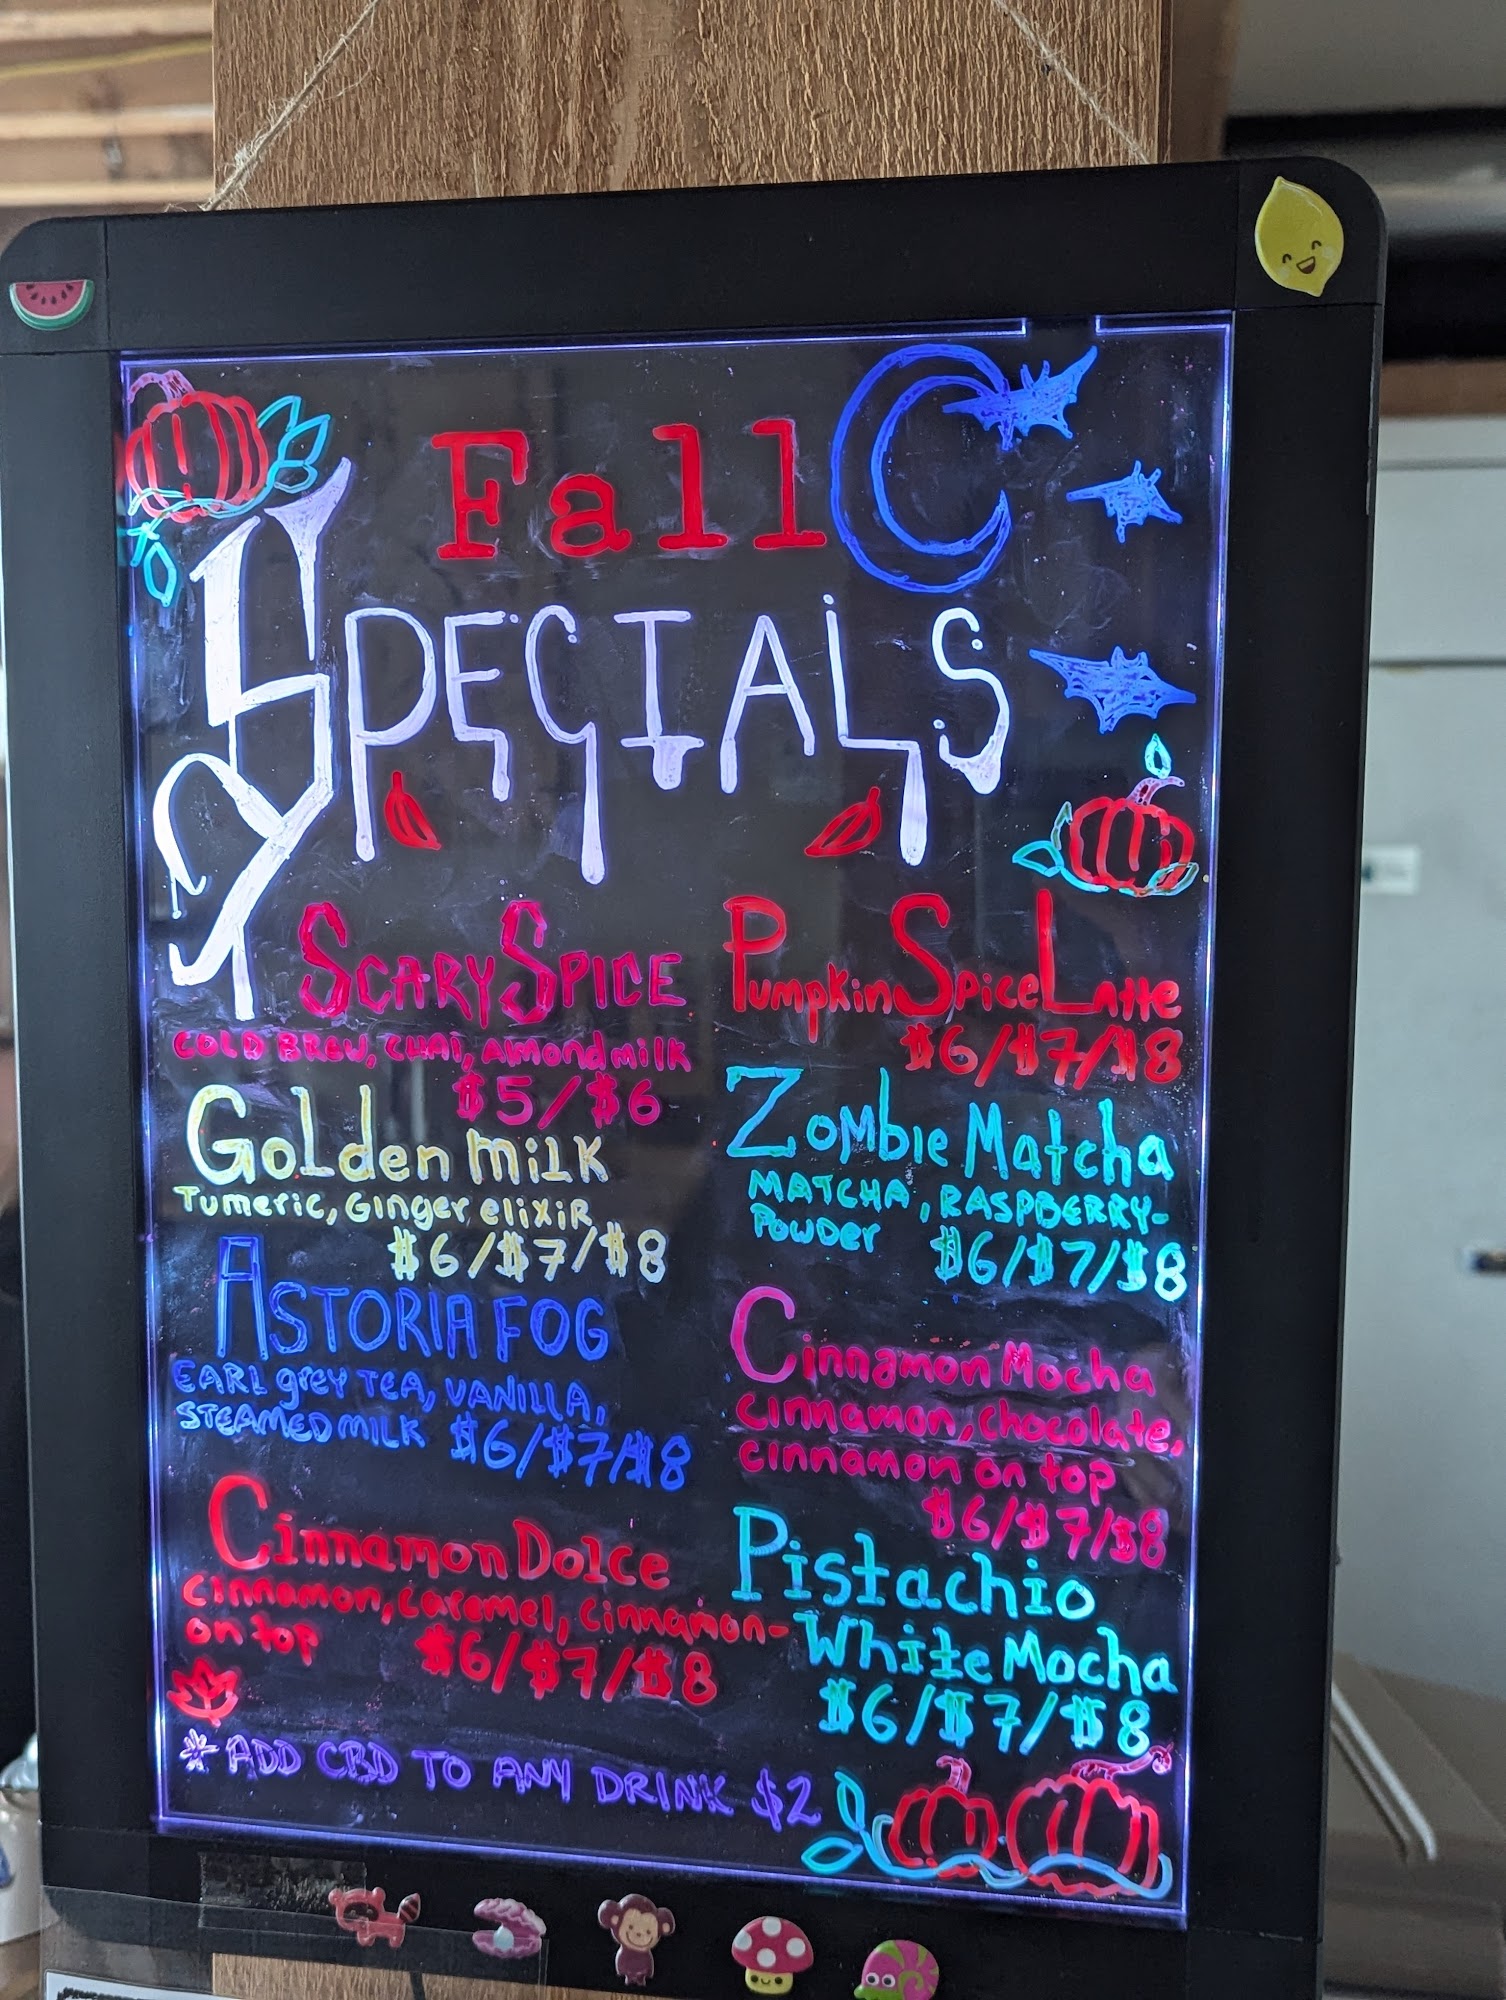 Fall
SPECIALS
SCARY SPICE
COLD BREW, CHAI, Almond milk
$5/$6
Golden MiLK
Tumeric, Ginger elixiR
$6/$7/$8
ASTORIA FOG
EARL grey TEA, VANILLA,
STEAMED MILK $6/$7/$8
Cinnamon Dolce
Cinnamon, Caramel, Cinnamon-
on top $6/$7/$8
Pumpkin Spice Latte
$6/$7/$8
Zombie Matcha
MATCHA, RASPBERRY-
POWDer $6/$7/$8
Cinnamon Mocha
Cinnamon, chocolate,
cinnamon on top
$6/$7/$8
Pistachio
White Mocha
$6/$7/$8
* ADD CBD TO ANY DRINK $2